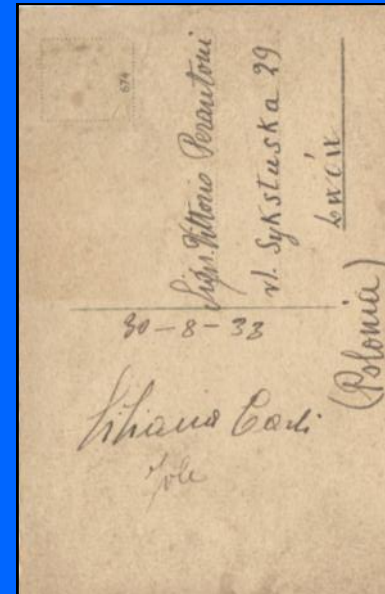 674
Sign. Vittorio Perantoni
ul. Sykstuska 29
Lwów
(Polonia)
30-8-33
Liliana Carli
Jole